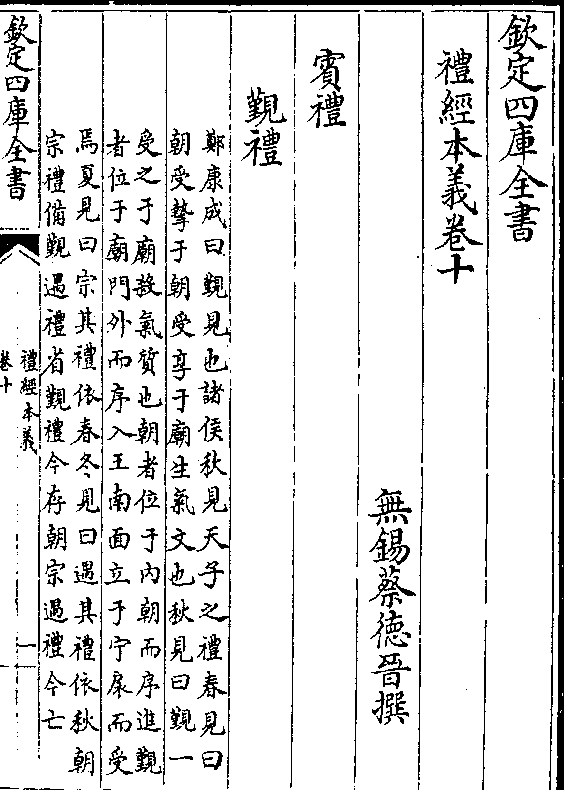 欽定四庫全書
禮經本義卷十
無錫蔡德晉撰
賓禮
覲禮
鄭康成曰覲見也諸侯秋見天子之禮春見曰
朝受摯于朝受享于廟生氣文也秋見曰覲一
受之于廟殺氣質也朝者位于內朝而序進覲
者位于廟門外而序入王南面立于宁扆而受
焉夏見曰宗其禮依春冬見曰遇其禮依秋朝
宗禮備覲遇禮省覲禮今存朝宗遇禮今亡
欽定四庫全書
禮經本義
卷十
一